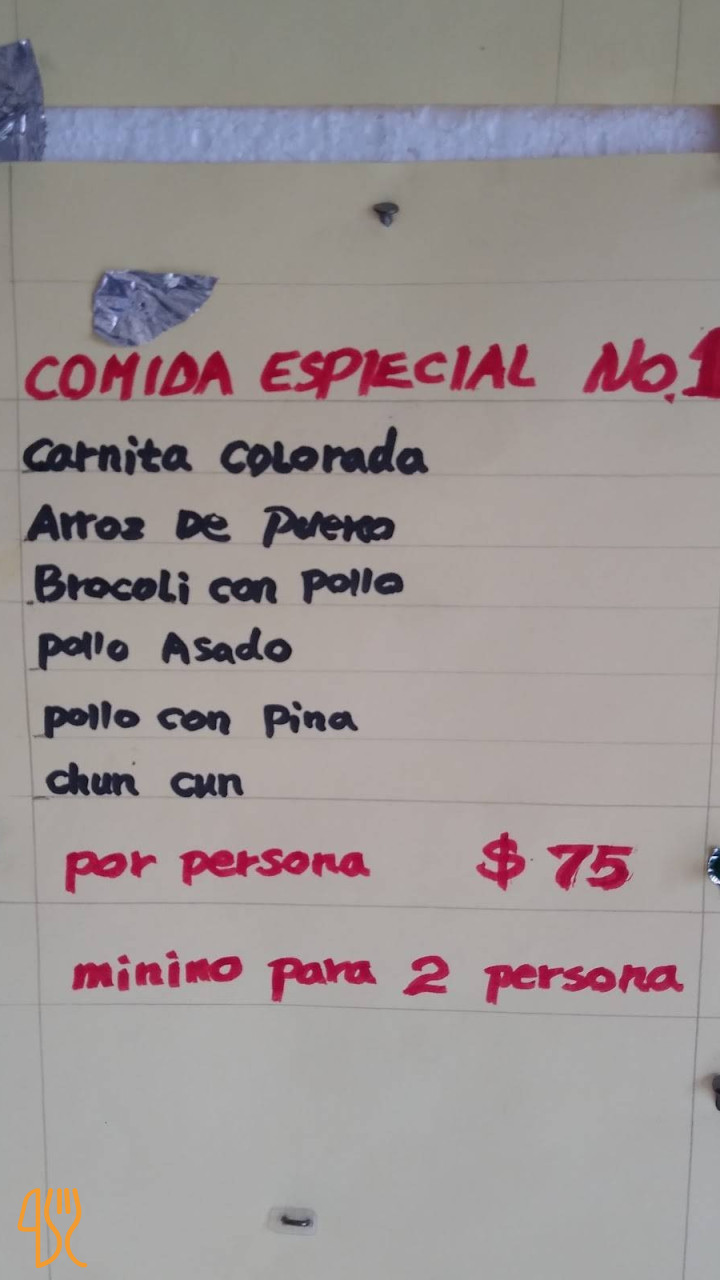 COMIDA ESPIECIAL No.1
Carnita COLOrada
Arroz De Puerco
Brocoli con pollo
pollo Asado
pollo con Pina
chun cun
por persona $ 75
minino para 2 persona